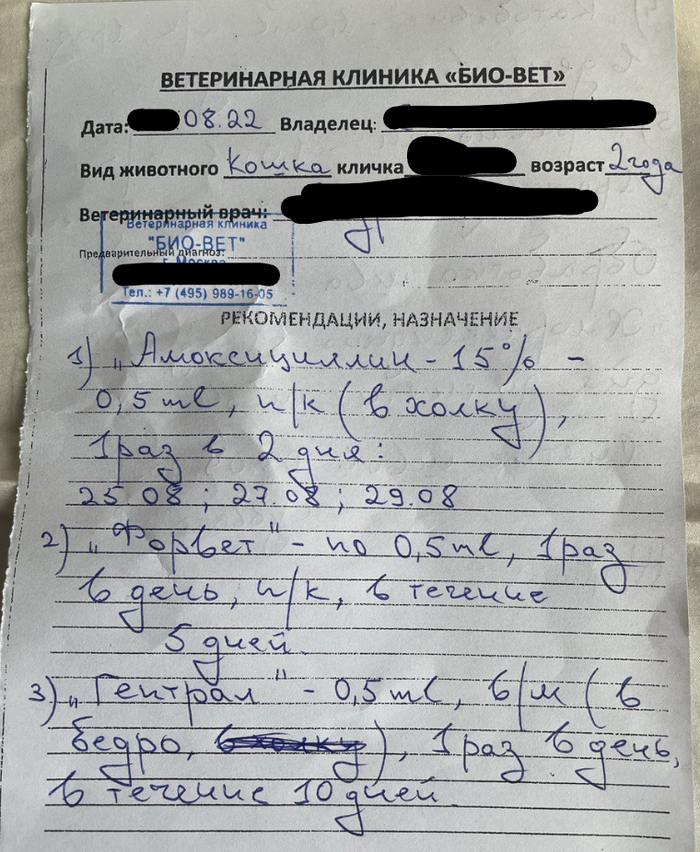 ВЕТЕРИНАРНАЯ КЛИНИКА «БИО-ВЕТ»
Дата: 08.22 Владелец:
Вид животного Кошка кличка возраст 2 года
Ветеринарный врач:
Ветеринарная клиника
"БИО-ВЕТ"
Предварительный диагноз:
г. Москва
Тел.: +7 (495) 989-16-05
РЕКОМЕНДАЦИИ, НАЗНАЧЕНИЕ
1) „Амоксициллин - 15% -
0,5 ml, п/к (в холку),
1 раз в 2 дня:
25 08 ; 27.08 ; 29.08
2) „Форвет" - по 0,5 ml, 1 раз
в день, п/к, в течение
5 дней.
3) „Гентрал" - 0,5 ml, в/м (в
бедро, в холку), 1 раз в день,
в течение 10 дней.